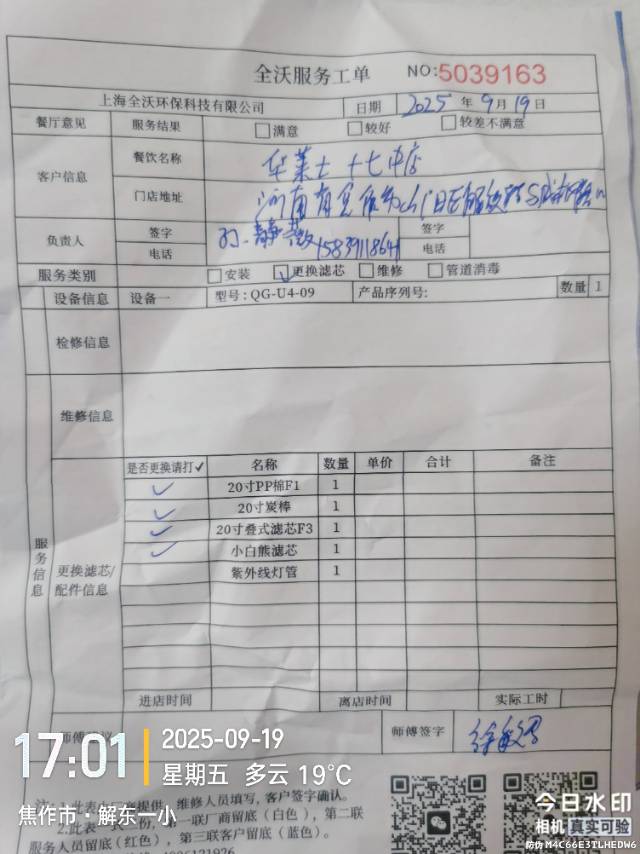 全沃服务工单 NO:5039163
上海全沃环保科技有限公司 日期 2025 年 9 月 19 日
餐厅意见 服务结果 满意 较好 较差不满意
客户信息 餐饮名称 华莱士十七中店
门店地址 河南省焦作市
负责人 签字 签字
电话 电话
服务类别 安装 ✓更换滤芯 维修 管道消毒
设备信息 设备一 型号:QG-U4-09 产品序列号: 数量 1
检修信息
维修信息
服务信息
更换滤芯/配件信息
是否更换请打✓ 名称 数量 单价 合计 备注
✓ 20寸PP棉F1 1
✓ 20寸炭棒 1
✓ 20寸叠式滤芯F3 1
✓ 小白熊滤芯 1
紫外线灯管 1
进店时间 离店时间 实际工时
师傅签字
17:01 2025-09-19
星期五 多云 19℃
焦作市·解东一小
维修人员填写,客户签字确认。
第一联厂商留底(白色),第二联
服务人员留底(红色),第三联客户留底(蓝色)。
今日水印
相机 真实可验
防伪 M4C66E3TLHEDW6